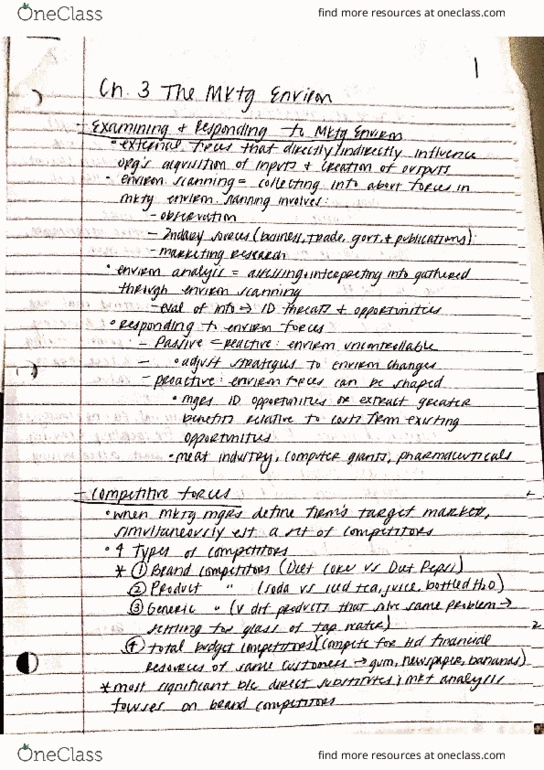 OneClass
find more resources at oneclass.com
1
Ch. 3 The Mktg Environ
- Examining + Responding to Mktg Environ
• external forces that directly/indirectly influence
org's aquisition of inputs + creation of outputs
• environ scanning = collecting info about forces in
mktg environ. scanning involves:
- observation
- 2ndary sources (business, trade, govt, + publications)
- marketing research
• environ analysis = assessing, interpreting info gathered
through environ scanning
- eval of info → ID threats + opportunities
• responding to environ forces
- Passive = reactive: environ uncontrollable
• adjust strategies to environ changes
- proactive: environ forces can be shaped
• mgrs ID opportunities or extract greater
benefits relative to costs from existing
opportunities
• meat industry, computer giants, pharmaceuticals
- Competitive forces
• when mktg mgrs define firm's target market,
simultaneously est. a set of competitors
• 4 types of competitors
* ① Brand competitors (Diet Coke vs Diet Pepsi)
② Product " (soda vs iced tea, juice, bottled H2O)
③ Generic " (v diff products that solve same problem →
settling for glass of tap water)
④ total budget competitors (compete for ltd financial
resources of same customers → gum, newspaper, bananas)
* most significant b/c direct substitutes; mkt analysis
focuses on brand competitors
2
OneClass
find more resources at oneclass.com